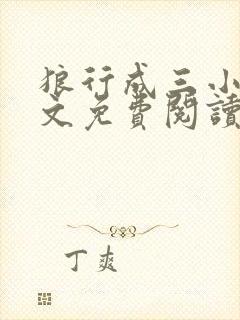 狼行成三小
文免費閱讀
丁爽